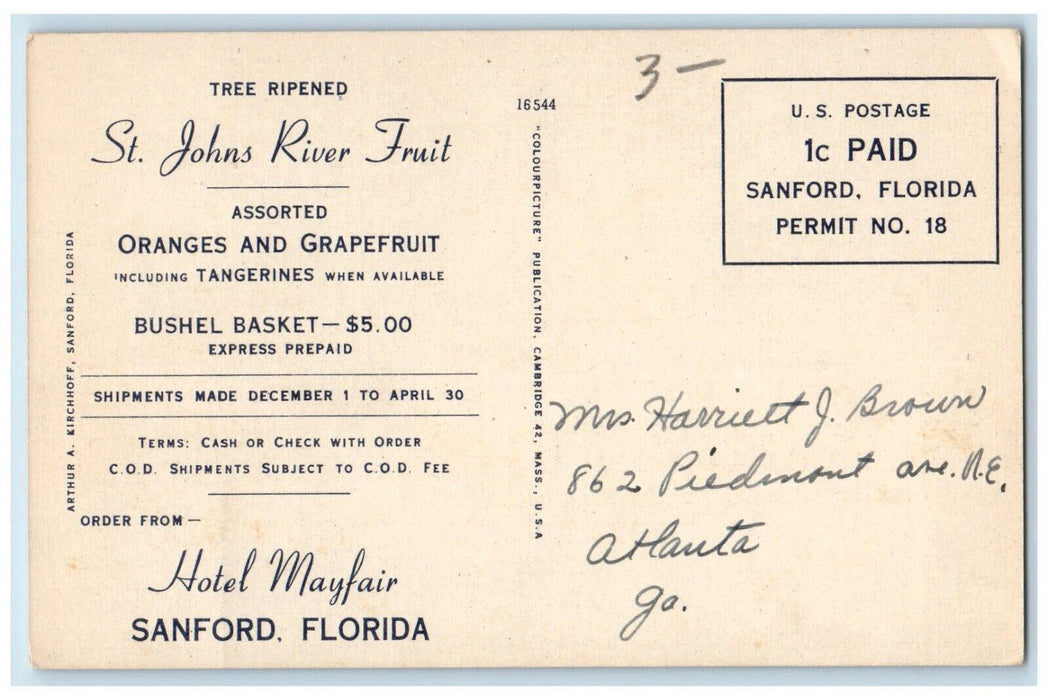 TREE RIPENED
St. Johns River Fruit
ASSORTED
ORANGES AND GRAPEFRUIT
INCLUDING TANGERINES WHEN AVAILABLE
BUSHEL BASKET—$5.00
EXPRESS PREPAID
SHIPMENTS MADE DECEMBER 1 TO APRIL 30
TERMS: CASH OR CHECK WITH ORDER
C.O.D. SHIPMENTS SUBJECT TO C.O.D. FEE
ORDER FROM—
Hotel Mayfair
SANFORD, FLORIDA
ARTHUR A. KIRCHHOFF, SANFORD, FLORIDA
16544
"COLOURPICTURE" PUBLICATION, CAMBRIDGE 42, MASS., U.S.A
3 —
U. S. POSTAGE
1c PAID
SANFORD, FLORIDA
PERMIT NO. 18
Mrs. Harriett J. Brown
862 Piedmont ave. N.E.
Atlanta
Ga.